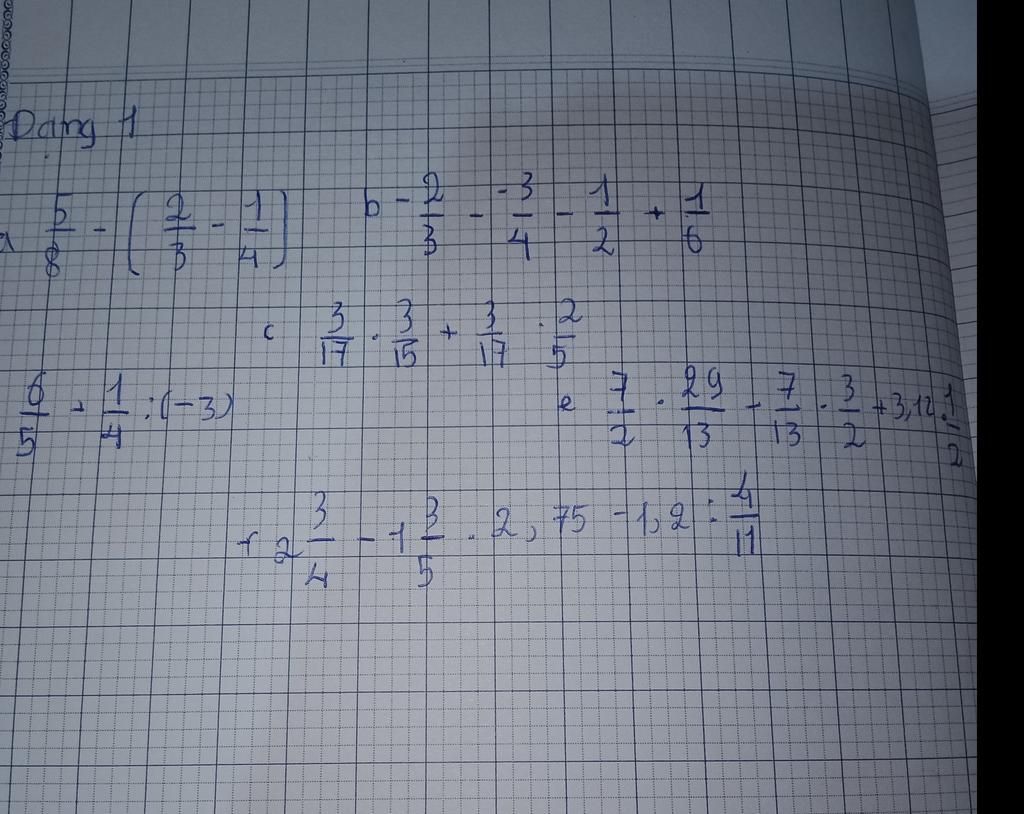 Dạng 1
a 5/8 - (2/3 - 1/4) b - 2/3 - -3/4 - 1/2 + 1/6
c 3/17 . 3/15 + 3/17 . 2/5
6/5 - 1/4 : (-3) e 7/2 . 29/13 - 7/13 . 3/2 + 3,12 . 1/2
f 2 3/4 - 1 3/5 . 2,75 - 1,2 : 4/11